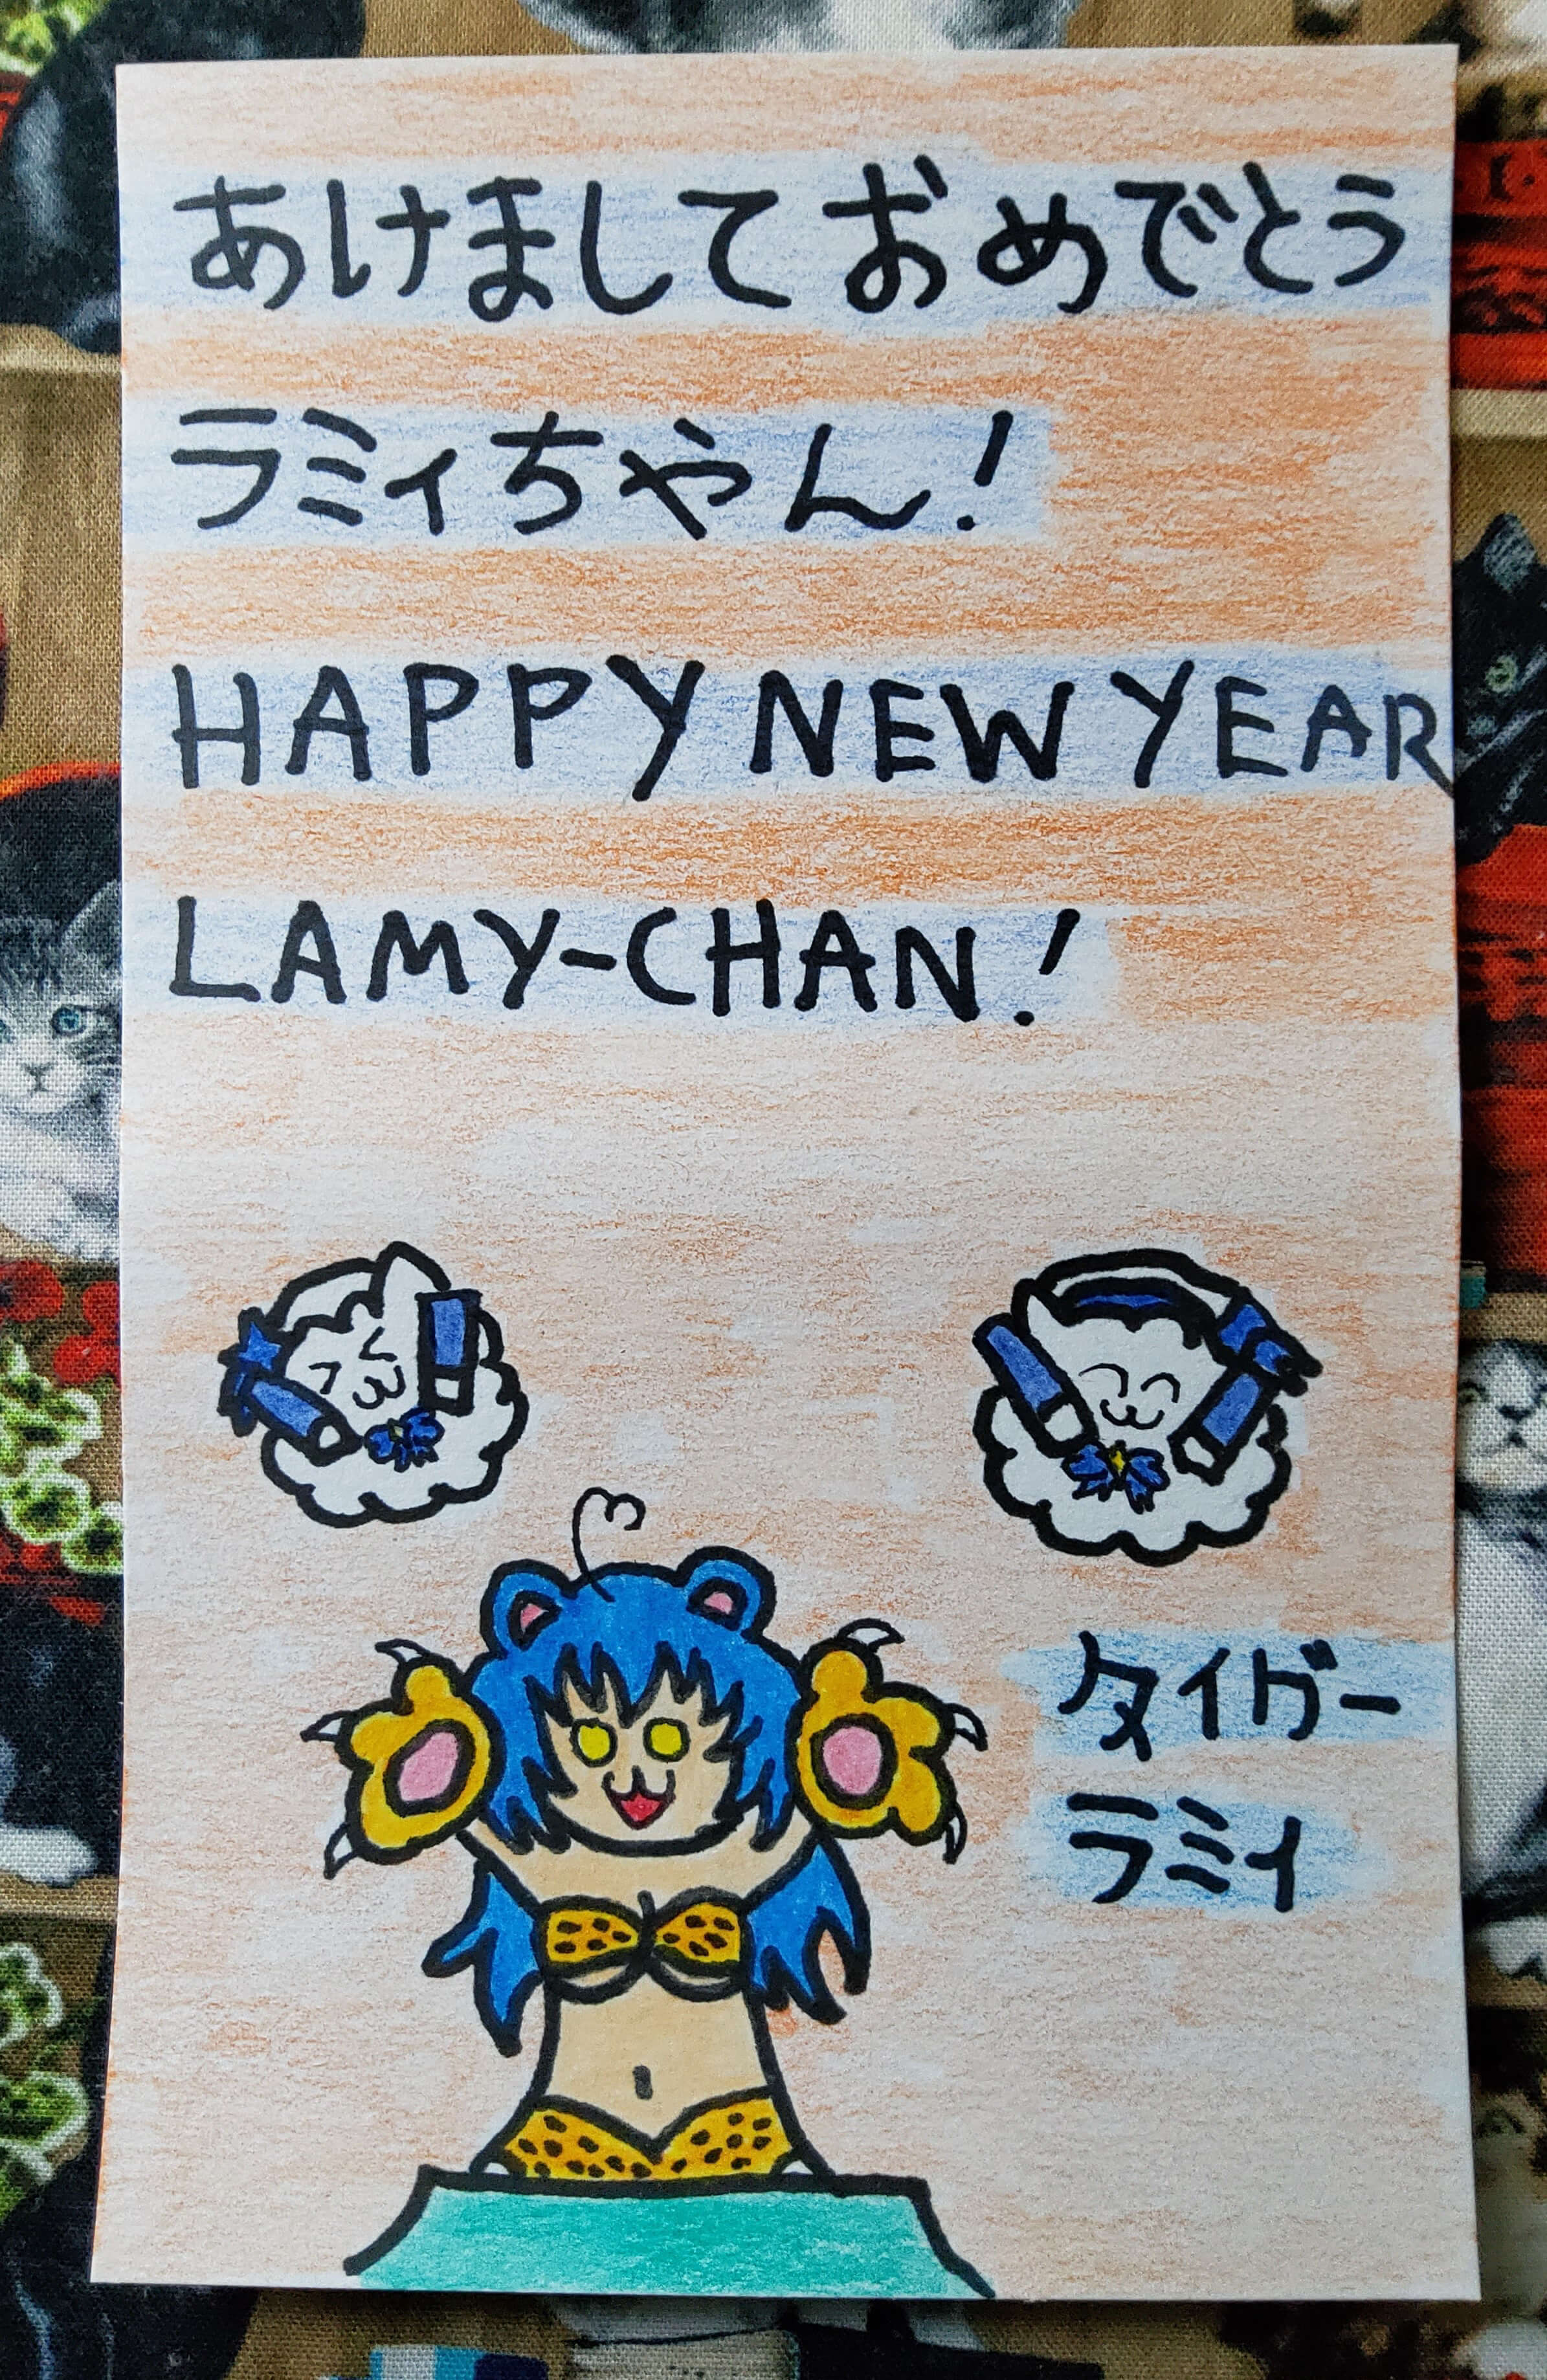 あけましておめでとう
ラミィちゃん!
HAPPY NEW YEAR
LAMY-CHAN!
タイガー
ラミィ